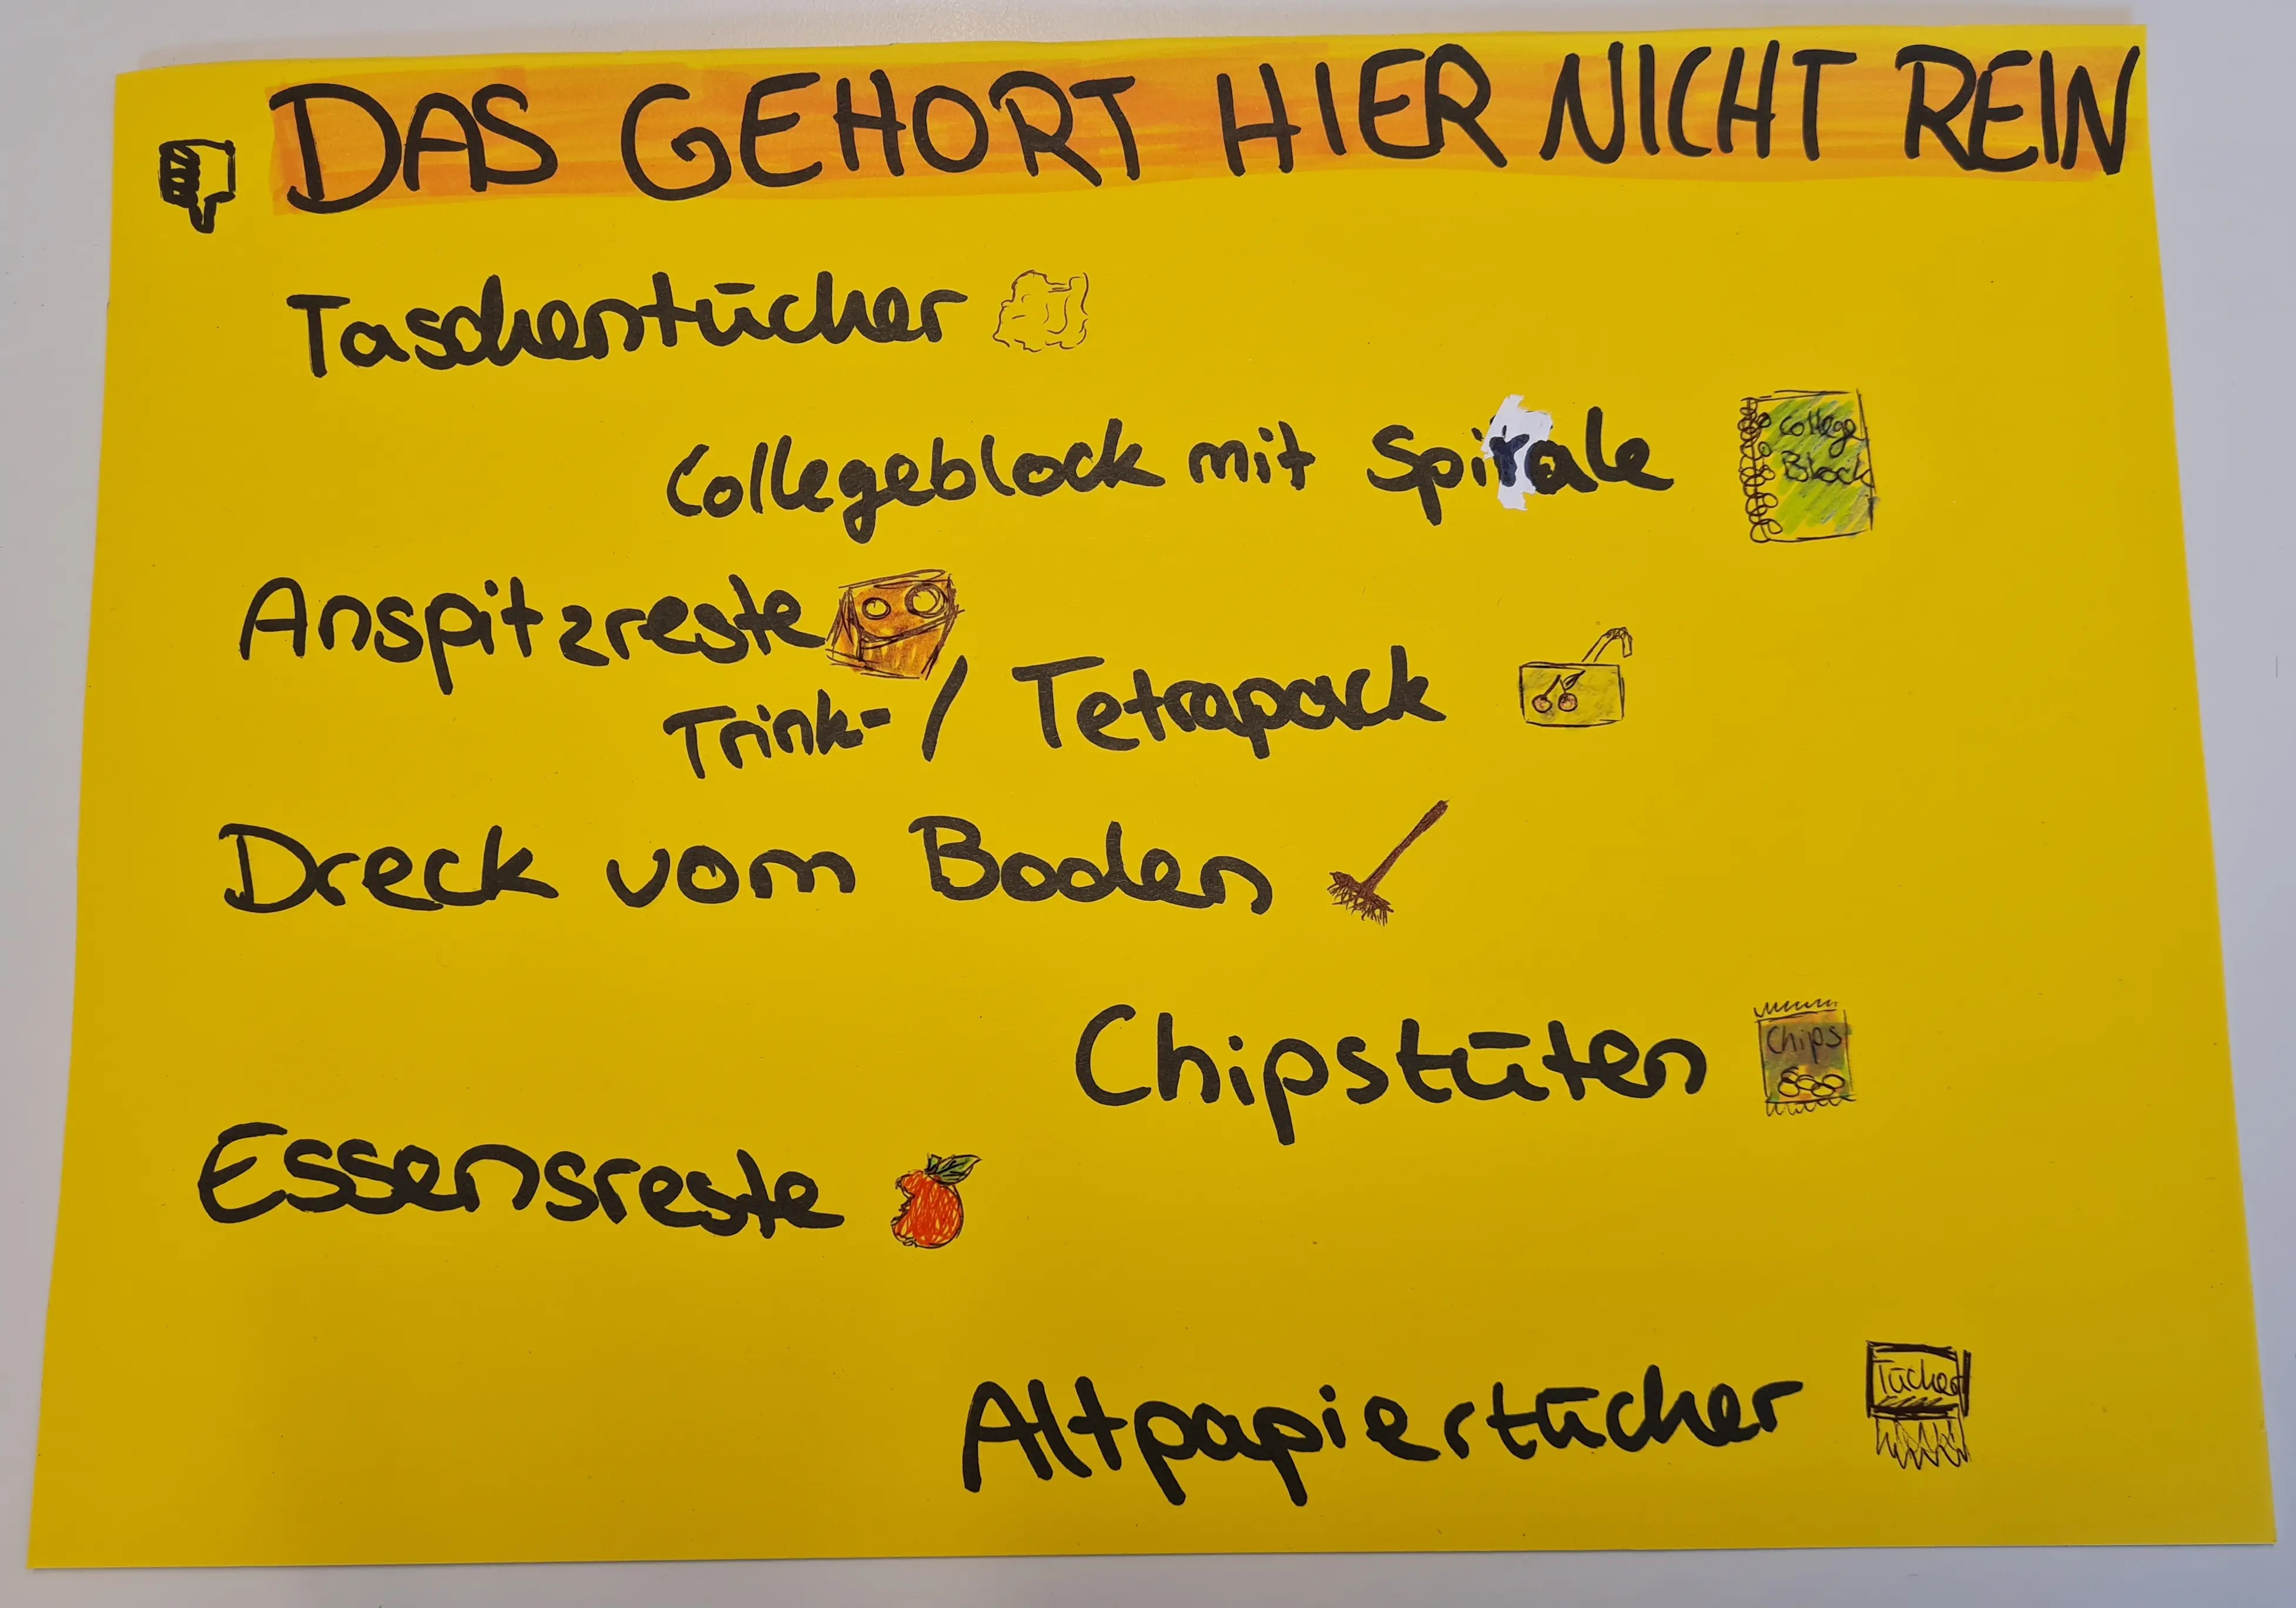 DAS GEHORT HIER NICHT REIN
Taschentücher
Collegeblock mit Spirale
College
Block
Anspitzreste
Trink-/ Tetrapack
Dreck vom Boden
Chipstüten
Chips
Essensreste
Altpapiertücher
Tücher